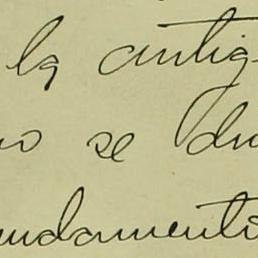 la antig
no se du
undamento